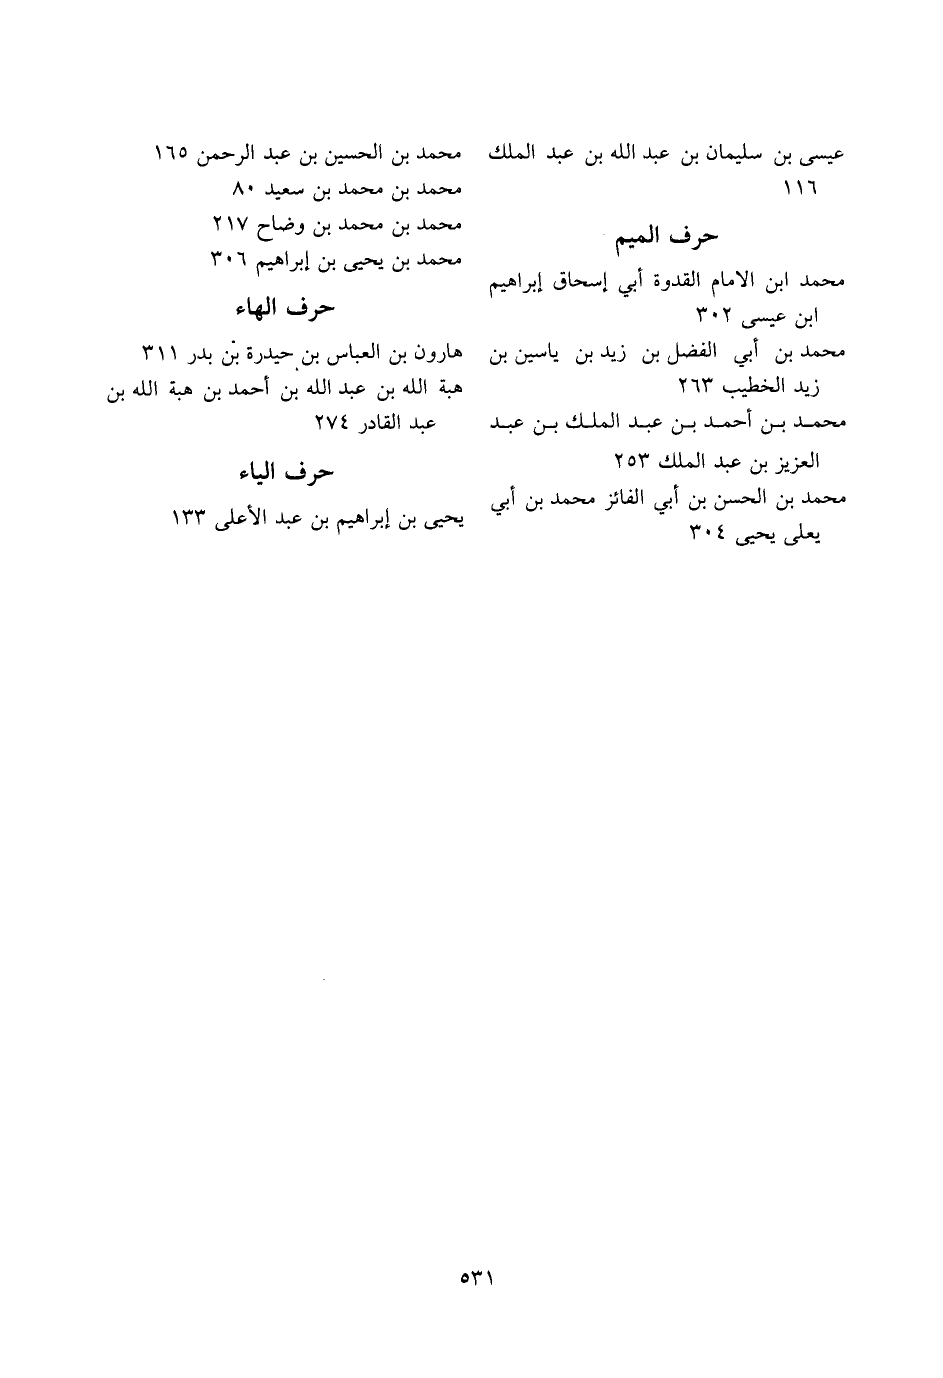 عيسى بن سليمان بن عبد الله بن عبد الملك
١١٦
حرف الميم
محمد ابن الامام القدوة أبي إسحاق إبراهيم
ابن عيسى ٣٠٢
محمد بن أبي الفضل بن زيد بن ياسين بن
زيد الخطيب ٢٦٣
محمد بن أحمد بن عبد الملك بن عبد
العزيز بن عبد الملك ٢٥٣
محمد بن الحسن بن أبي الفائز محمد بن أبي
يعلى يحيى ٣٠٤
محمد بن الحسين بن عبد الرحمن ١٦٥
محمد بن محمد بن سعيد ٨٠
محمد بن محمد بن وضاح ٢١٧
محمد بن يحيى بن إبراهيم ٣٠٦
حرف الهاء
هارون بن العباس بن حيدرة بن بدر ٣١١
هبة الله بن عبد الله بن أحمد بن هبة الله بن
عبد القادر ٢٧٤
حرف الياء
يحيى بن إبراهيم بن عبد الأعلى ١٣٣
٥٣١